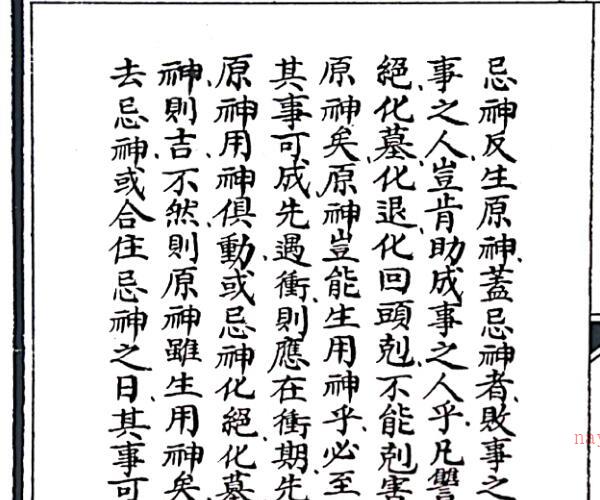 忌神反生原神蓋忌神者敗事之
事之人豈肯助成事之人乎凡讐
絕化墓化退化回頭剋不能剋害
原神矣原神豈能生用神乎必至
其事可成先遇衝則應在衝期先
原神用神俱動或忌神化絕化墓
神則吉不然則原神雖生用神矣
去忌神或合住忌神之日其事可
nay